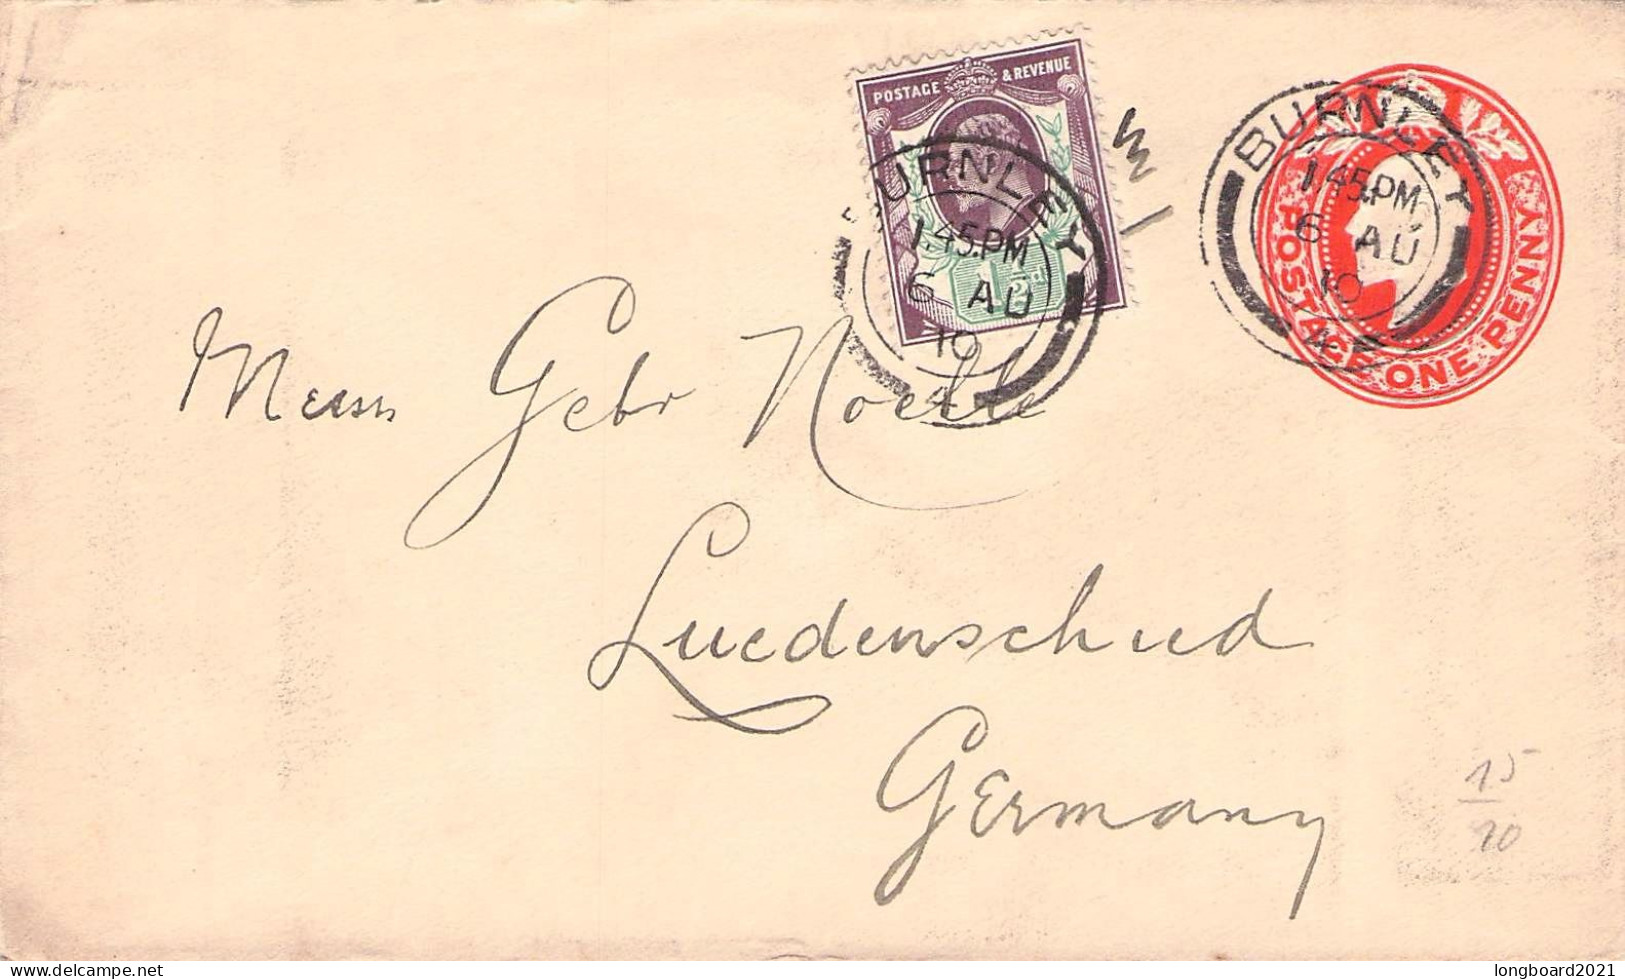 POSTAGE & REVENUE
1½d
BURNLEY
1.45.PM
6 AU
10
4
BURNLEY
1.45.PM
6 AU
10
4
POSTAGE ONE PENNY
Messrs Gebr Noelle
Luedenscheid
Germany
15
10
delcampe.net
longboard2021